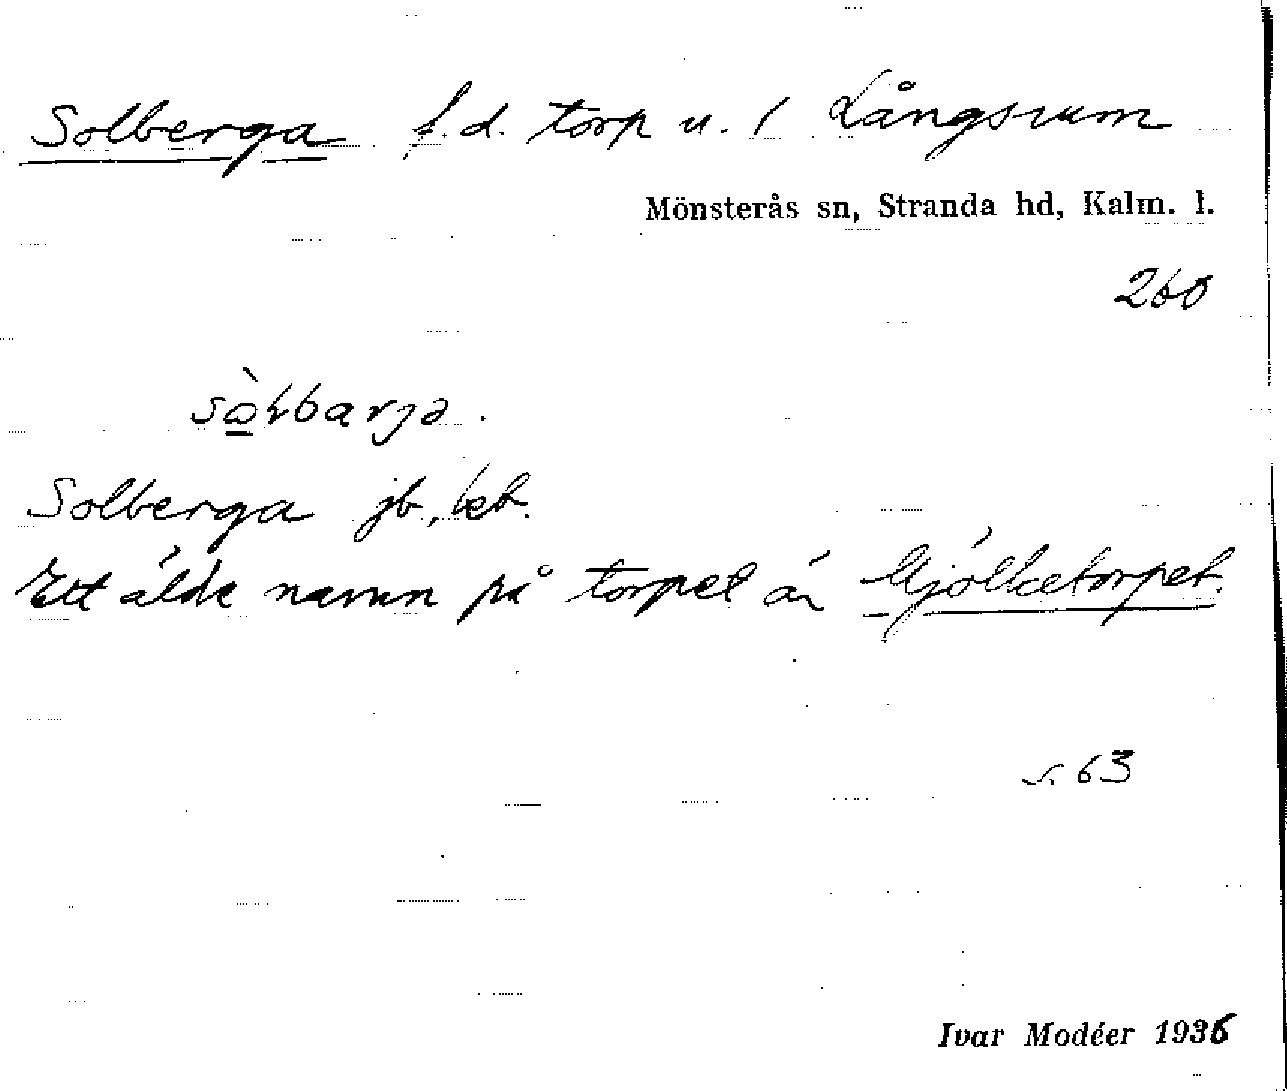 Solberga f.d. torp u. 1 Långsrum
Mönsterås sn, Stranda hd, Kalm. l.
260
Solberga jb, bet.
Ett äldre namn på torpet är Mjölketorpet.
s. 63
Ivar Modéer 1936